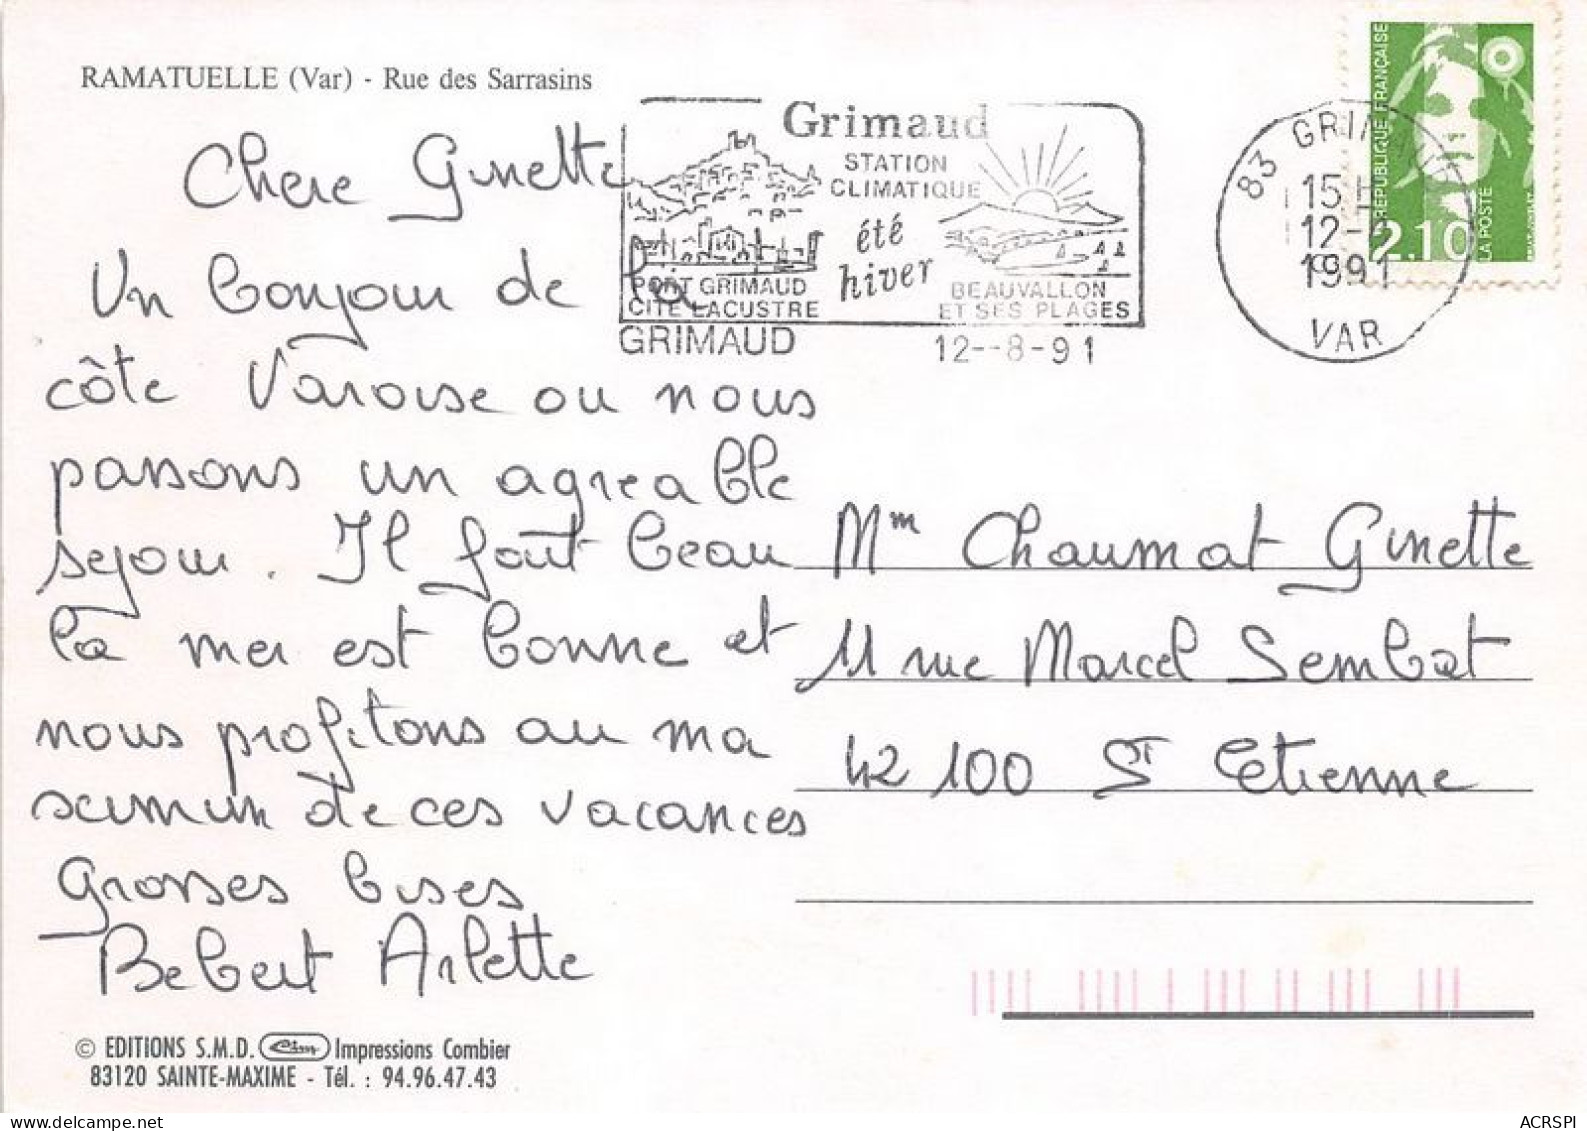 RAMATUELLE (Var) - Rue des Sarrasins
Grimaud
STATION
CLIMATIQUE
été
hiver
PORT GRIMAUD
CITE LACUSTRE
BEAUVALLON
ET SES PLAGES
GRIMAUD
12--8-91
83 GRIMAUD
15 H
12-8
1991
VAR
RÉPUBLIQUE FRANÇAISE
2,10
LA POSTE
Chere Ginette
Un bonjour de la
côte Varoise ou nous
passons un agreable
sejour. Il fait beau
la mer est bonne et
nous profitons au ma
ximun de ces vacances
Grosses bises
Bebert Arlette
Mm Chaumat Ginette
11 rue Marcel Sembat
42100 St Etienne
© EDITIONS S.M.D. Cim Impressions Combier
83120 SAINTE-MAXIME - Tél. : 94.96.47.43
delcampe.net
ACRSPI